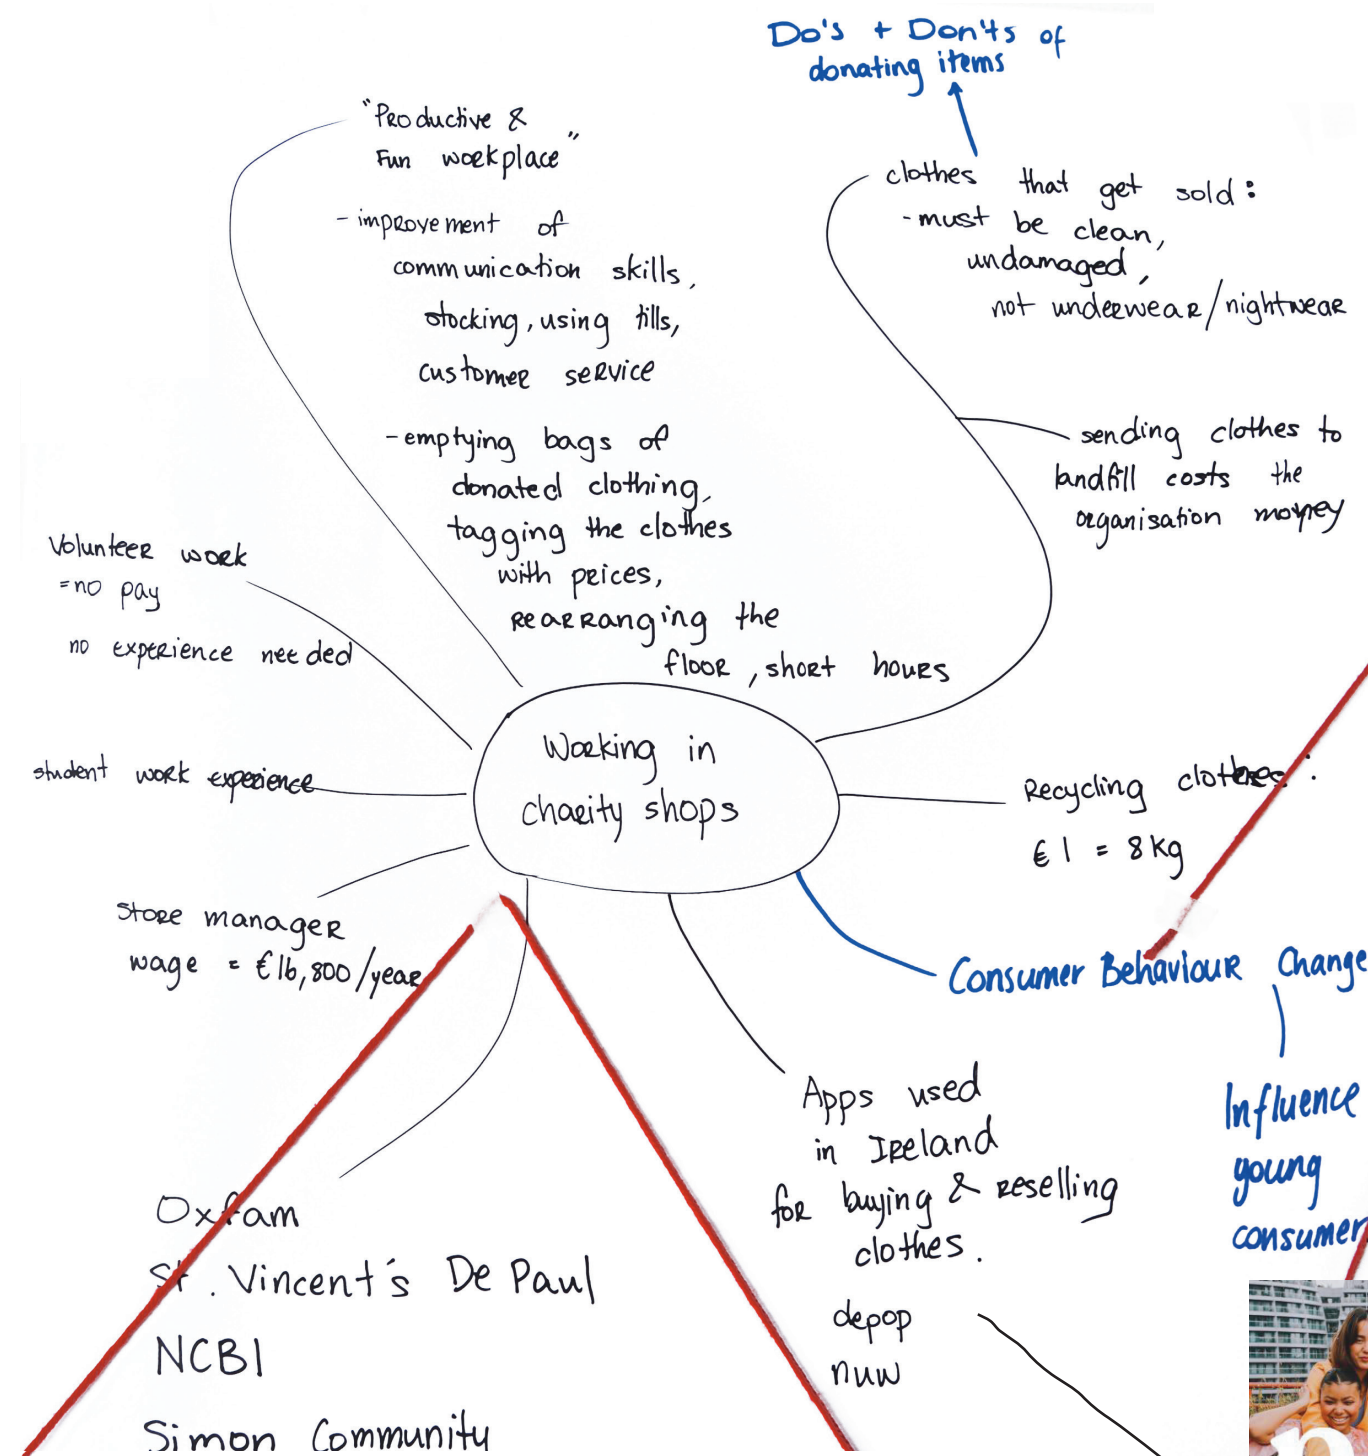 Do's + Don'ts of
donating items
"Productive &
Fun workplace"
- improvement of
communication skills,
stocking, using tills,
customer service
- emptying bags of
donated clothing,
tagging the clothes
with prices,
rearranging the
floor, short hours
clothes that get sold:
- must be clean,
undamaged,
not underwear/nightwear
sending clothes to
landfill costs the
organisation money
Volunteer work
= no pay
no experience needed
student work experience
Store manager
wage = €16,800/year
Working in
charity shops
Recycling clothes:
€1 = 8kg
Consumer Behaviour Change
Influence
young
consumer
Apps used
in Ireland
for buying & reselling
clothes.
depop
nuw
Oxfam
St. Vincent's De Paul
NCBI
Simon Community